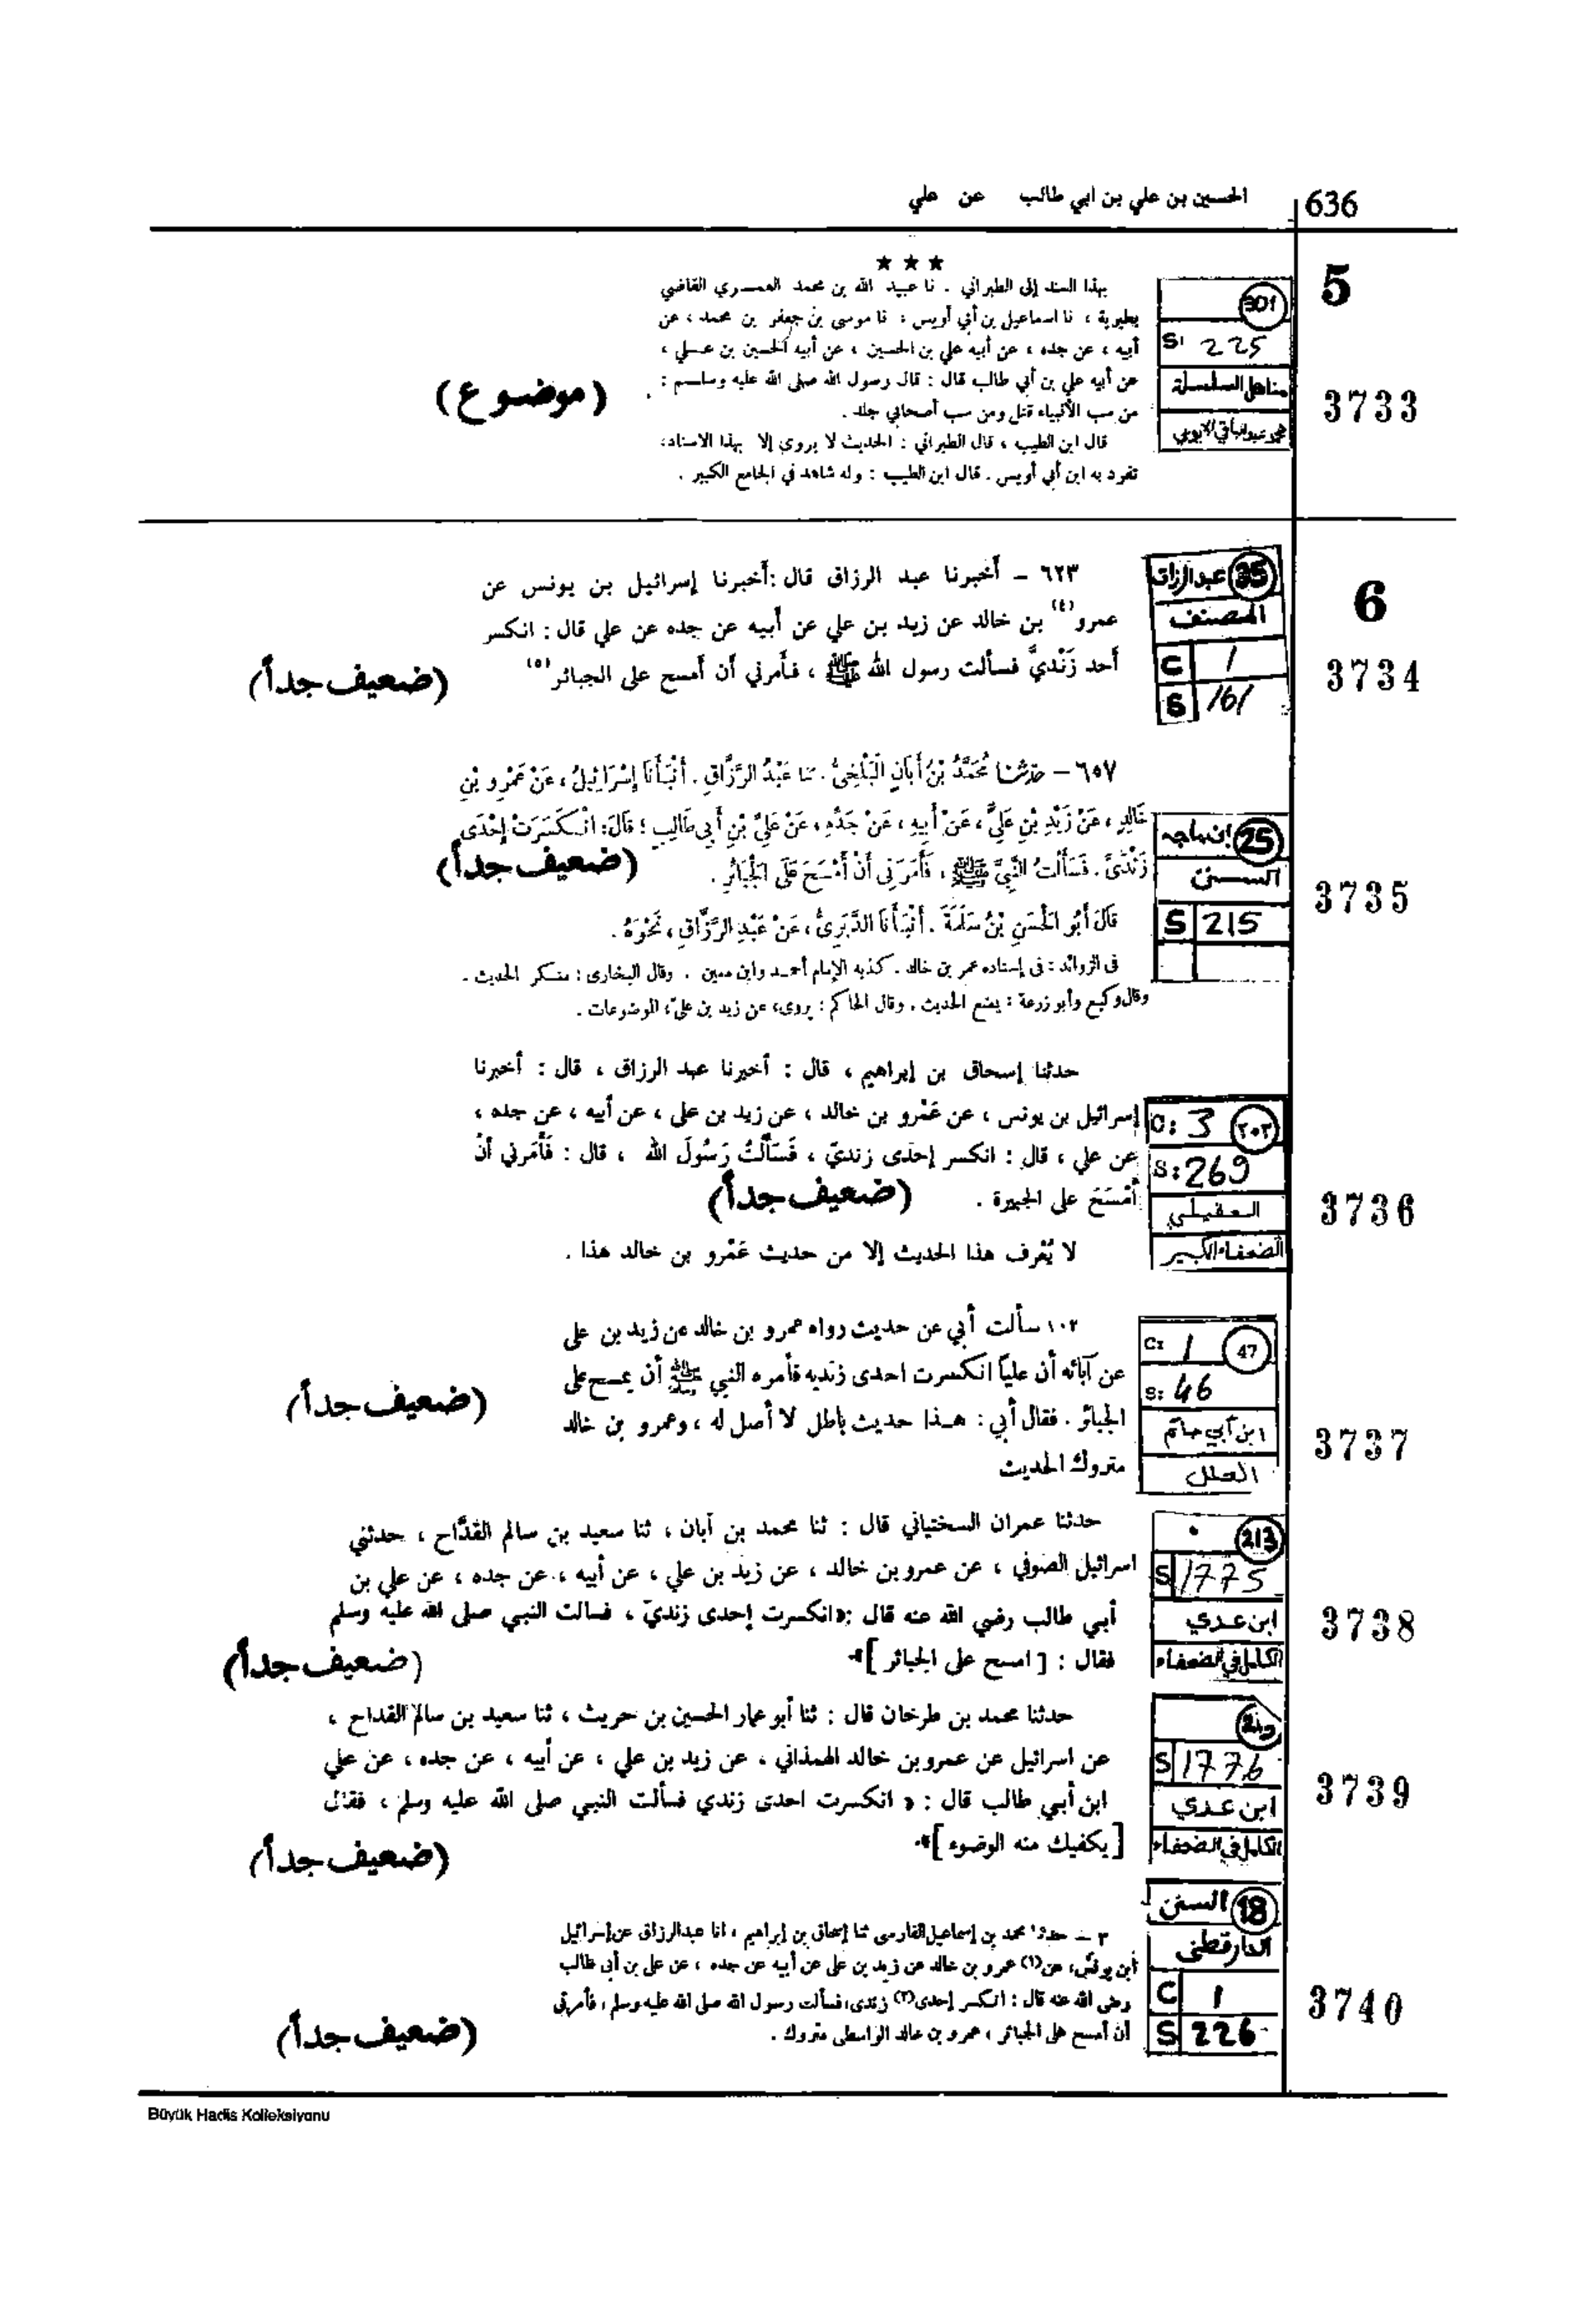 636
الحسين بن علي بن ابي طالب عن علي
★ ★ ★
5
بهذا السند إلى الطبراني . نا عبيد الله بن محمد العمري القاضي
بطبرية ، نا اسماعيل بن أبي أويس : نا موسى بن جعفر بن محمد ، عن
أبيه ، عن جده ، عن أبيه علي بن الحسين ، عن أبيه الحسين بن عـلي ،
عن أبيه علي بن أبي طالب قال : قال رسول الله صلى الله عليه وسلم :
من سب الأنبياء قتل ومن سب أصحابي جلد .
قال ابن الطيب ، قال الطبراني : الحديث لا يروى إلا بهذا الاسناد،
تفرد به ابن أبي أويس . قال ابن الطيب : وله شاهد في الجامع الكبير .
(موضوع)
301
S: 225
مناهل السلسلة
محمد عبد الباقي الايوبي
3733
6
٦٢٣ – أخبرنا عبد الرزاق قال :أخبرنا إسرائيل بن يونس عن
عمرو(٤) بن خالد عن زيد بن علي عن أبيه عن جده عن علي قال : انكسر
أحد زَنْديَّ فسألت رسول الله ﷺ ، فأمرني أن أمسح على الجبائر(٥)
(ضعيف جداً)
35 عبدالرزاق
المصنف
C 1
S 161
3734
٦٥٧ – حدثنا مُحَمَّدُ بْنُ أَبَانٍ الْبَلْخِيُّ . ثنا عَبْدُ الرَّزَّاقِ . أَنْبَأَنَا إِسْرَائِيلُ ، عَنْ عَمْرِو بْنِ
خَالِدٍ ، عَنْ زَيْدِ بْنِ عَلِيٍّ ، عَنْ أَبِيهِ ، عَنْ جَدِّهِ ، عَنْ عَلِيِّ بْنِ أَبِي طَالِبٍ ؛ قَالَ: انْكَسَرَتْ إِحْدَى
زَنْدَيَّ . فَسَأَلْتُ النَّبِيَّ ﷺ ، فَأَمَرَنِي أَنْ أَمْسَحَ عَلَى الْجَبَائِرِ .
(ضعيف جداً)
قَالَ أَبُو الْحَسَنِ بْنُ سَلَمَةَ . أَنْبَأَنَا الدَّبَرِيُّ ، عَنْ عَبْدِ الرَّزَّاقِ ، نَحْوَهُ .
فى الزوائد : فى إسناده عمر بن خالد . كذبه الإمام أحمد وابن معين . وقال البخارى : منكر الحديث .
وقال وكيع وأبو زرعة : يضع الحديث . وقال الحاكم : يروى، عن زيد بن علىّ، الموضوعات .
25 ابن ماجه
السنن
S 215
3735
حدثنا إسحاق بن إبراهيم ، قال : أخبرنا عبد الرزاق ، قال : أخبرنا
إسرائيل بن يونس ، عن عَمْرو بن خالد ، عن زيد بن على ، عن أبيه ، عن جده ،
عن علي ، قال : انكسر إحدى زنديّ ، فَسَأَلْتُ رَسُولَ الله ، قال : فَأَمَرني أنْ
أَمْسَحَ على الجبيرة .
(ضعيف جداً)
لا يُعْرف هذا الحديث إلا من حديث عَمْرو بن خالد هذا .
C: 3 ٢٠٢
S: 269
العقيلي
الضعفاء الكبير
3736
١٠٢ سألت أبي عن حديث رواه عمرو بن خالد عن زيد بن على
عن آبائه أن علياً انكسرت احدى زنديه فأمره النبي ﷺ أن يمسح على
الجبائر . فقال أبي : هـذا حديث باطل لا أصل له ، وعمرو بن خالد
متروك الحديث
(ضعيف جداً)
C: 1 47
S: 46
ابن أبي حاتم
العلل
3737
حدثنا عمران السختياني قال : ثنا محمد بن آبان ، ثنا سعيد بن سالم القدَّاح ، حدثني
اسرائيل الصوفي ، عن عمرو بن خالد ، عن زيد بن علي ، عن أبيه ، عن جده ، عن علي بن
أبي طالب رضي الله عنه قال :«انكسرت إحدى زنديّ ، فسالت النبي صلى الله عليه وسلم
فقال : [ امسح على الجبائر ]»
(ضعيف جداً)
213
S 1775
ابن عدي
الكامل في الضعفاء
3738
حدثنا محمد بن طرخان قال : ثنا أبو عمار الحسين بن حريث ، ثنا سعيد بن سالم القداح ،
عن اسرائيل عن عمرو بن خالد الهمذاني ، عن زيد بن علي ، عن أبيه ، عن جده ، عن علي
ابن أبي طالب قال : « انكسرت احدى زندي فسألت النبي صلى الله عليه وسلم ، فقال
[ يكفيك منه الوضوء ]».
(ضعيف جداً)
S 1776
ابن عدي
الكامل في الضعفاء
3739
٣ – حدثنا محمد بن إسماعيل الفارسى ثنا إسحاق بن إبراهيم ، انا عبدالرزاق عن إسرائيل
ابن يونس، عن(١) عمرو بن خالد عن زيد بن على عن أبيه عن جده ، عن على بن أبى طالب
رضى الله عنه قال : انكسر إحدى(٢) زندى، فسألت رسول الله صلى الله عليه وسلم ، فأمرنى
أن أمسح على الجبائر ، عمرو بن خالد الواسطى متروك .
(ضعيف جداً)
18 السنن
الدارقطنى
C 1
S 226
3740
Büyük Hadis Kolleksiyonu